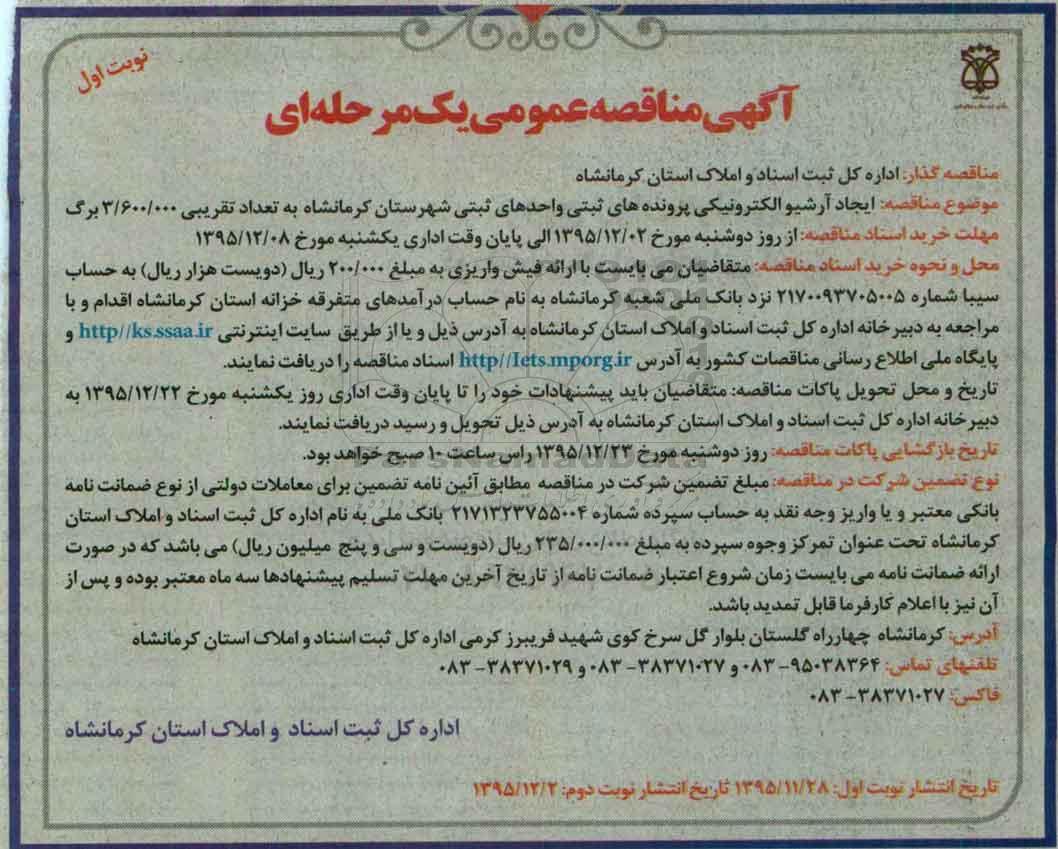 نوبت اول
آگهی مناقصه عمومی یک مرحله‌ای
مناقصه گذار: اداره کل ثبت اسناد و املاک استان کرمانشاه
موضوع مناقصه: ایجاد آرشیو الکترونیکی پرونده های ثبتی واحدهای ثبتی شهرستان کرمانشاه به تعداد تقریبی ۳/۶۰۰/۰۰۰ برگ
مهلت خرید اسناد مناقصه: از روز دوشنبه مورخ ۱۳۹۵/۱۲/۰۲ الی پایان وقت اداری یکشنبه مورخ ۱۳۹۵/۱۲/۰۸
محل و نحوه خرید اسناد مناقصه: متقاضیان می بایست با ارائه فیش واریزی به مبلغ ۲۰۰/۰۰۰ ریال (دویست هزار ریال) به حساب
سیبا شماره ۲۱۷۰۰۹۳۷۰۵۰۰۵ نزد بانک ملی شعبه کرمانشاه به نام حساب درآمدهای متفرقه خزانه استان کرمانشاه اقدام و با
مراجعه به دبیرخانه اداره کل ثبت اسناد و املاک استان کرمانشاه به آدرس ذیل و یا از طریق سایت اینترنتی http//ks.ssaa.ir و
پایگاه ملی اطلاع رسانی مناقصات کشور به آدرس http//Iets.mporg.ir اسناد مناقصه را دریافت نمایند.
تاریخ و محل تحویل پاکات مناقصه: متقاضیان باید پیشنهادات خود را تا پایان وقت اداری روز یکشنبه مورخ ۱۳۹۵/۱۲/۲۲ به
دبیرخانه اداره کل ثبت اسناد و املاک استان کرمانشاه به آدرس ذیل تحویل و رسید دریافت نمایند.
تاریخ بازگشایی پاکات مناقصه: روز دوشنبه مورخ ۱۳۹۵/۱۲/۲۳ راس ساعت ۱۰ صبح خواهد بود.
نوع تضمین شرکت در مناقصه: مبلغ تضمین شرکت در مناقصه مطابق آئین نامه تضمین برای معاملات دولتی از نوع ضمانت نامه
بانکی معتبر و یا واریز وجه نقد به حساب سپرده شماره ۲۱۷۱۳۲۳۷۵۵۰۰۴ بانک ملی به نام اداره کل ثبت اسناد و املاک استان
کرمانشاه تحت عنوان تمرکز وجوه سپرده به مبلغ ۲۳۵/۰۰۰/۰۰۰ ریال (دویست و سی و پنج میلیون ریال) می باشد که در صورت
ارائه ضمانت نامه می بایست زمان شروع اعتبار ضمانت نامه از تاریخ آخرین مهلت تسلیم پیشنهادها سه ماه معتبر بوده و پس از
آن نیز با اعلام کارفرما قابل تمدید باشد.
آدرس: کرمانشاه چهارراه گلستان بلوار گل سرخ کوی شهید فریبرز کرمی اداره کل ثبت اسناد و املاک استان کرمانشاه
تلفنهای تماس: ۹۵۰۳۸۳۶۴-۰۸۳ و ۳۸۳۷۱۰۲۷-۰۸۳ و ۳۸۳۷۱۰۲۹-۰۸۳
فاکس: ۳۸۳۷۱۰۲۷-۰۸۳
اداره کل ثبت اسناد و املاک استان کرمانشاه
تاریخ انتشار نوبت اول: ۱۳۹۵/۱۱/۲۸ تاریخ انتشار نوبت دوم: ۱۳۹۵/۱۲/۲